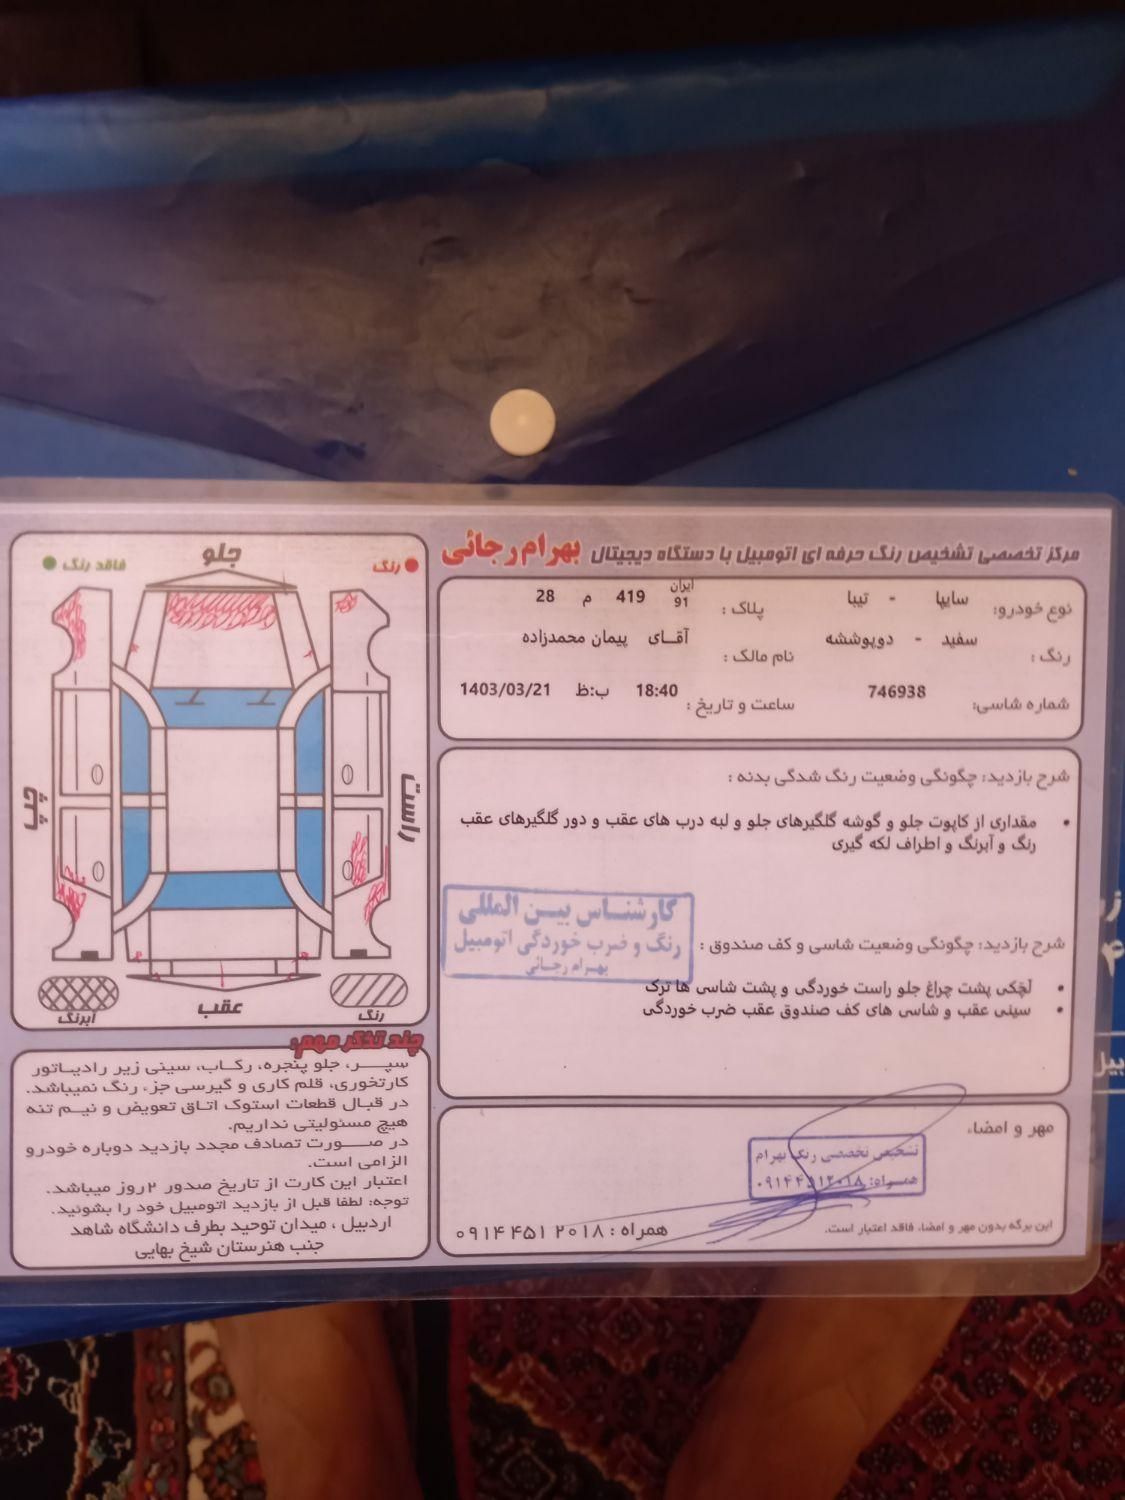 مرکز تخصصی تشخیص رنگ حرفه ای اتومبیل با دستگاه دیجیتال بهرام رجائی
نوع خودرو: سایپا - تیبا
پلاک : ایران 91 419 م 28
رنگ : سفید - دوپوششه
نام مالک : آقای پیمان محمدزاده
شماره شاسی: 746938
ساعت و تاریخ : 18:40 ب:ظ 1403/03/21
شرح بازدید: چگونگی وضعیت رنگ شدگی بدنه :
• مقداری از کاپوت جلو و گوشه گلگیرهای جلو و لبه درب های عقب و دور گلگیرهای عقب
رنگ و آبرنگ و اطراف لکه گیری
کارشناس بین المللی
رنگ و ضرب خوردگی اتومبیل
بهرام رجائی
شرح بازدید: چگونگی وضعیت شاسی و کف صندوق :
• لچکی پشت چراغ جلو راست خوردگی و پشت شاسی ها ترک
• سینی عقب و شاسی های کف صندوق عقب ضرب خوردگی
مهر و امضاء
تشخیص تخصصی رنگ بهرام
همراه: ۰۹۱۴۴۵۱۲۰۱۸
این برگه بدون مهر و امضاء، فاقد اعتبار است.
همراه : ۰۹۱۴ ۴۵۱ ۲۰۱۸
جلو
رنگ
فاقد رنگ
چپ
راست
عقب
آبرنگ
رنگ
چند تذکر مهم:
سپر، جلو پنجره، رکاب، سینی زیر رادیاتور
کارتخوری، قلم کاری و گیرسی جزء رنگ نمیباشد.
در قبال قطعات استوک اتاق تعویض و نیم تنه
هیچ مسئولیتی نداریم.
در صورت تصادف مجدد بازدید دوباره خودرو
الزامی است.
اعتبار این کارت از تاریخ صدور ۲ روز میباشد.
توجه: لطفا قبل از بازدید اتومبیل خود را بشوئید.
اردبیل ، میدان توحید بطرف دانشگاه شاهد
جنب هنرستان شیخ بهایی